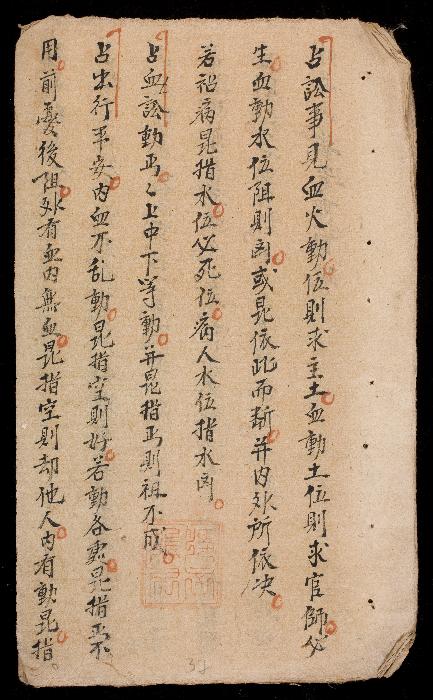 占訟事見血火動位則求主土血動土位則求官師必
生血動水位阻則凶或昆依此而断并内外所依决
若祐病昆指水位必死位病人水位指水凶
占血訟動馬々上中下等動并昆指馬則祖不成
占出行平安内血不乱動昆指空則好若動各處昆指不
用前憂後阻外有血内無血昆指空則却他人内有動昆指